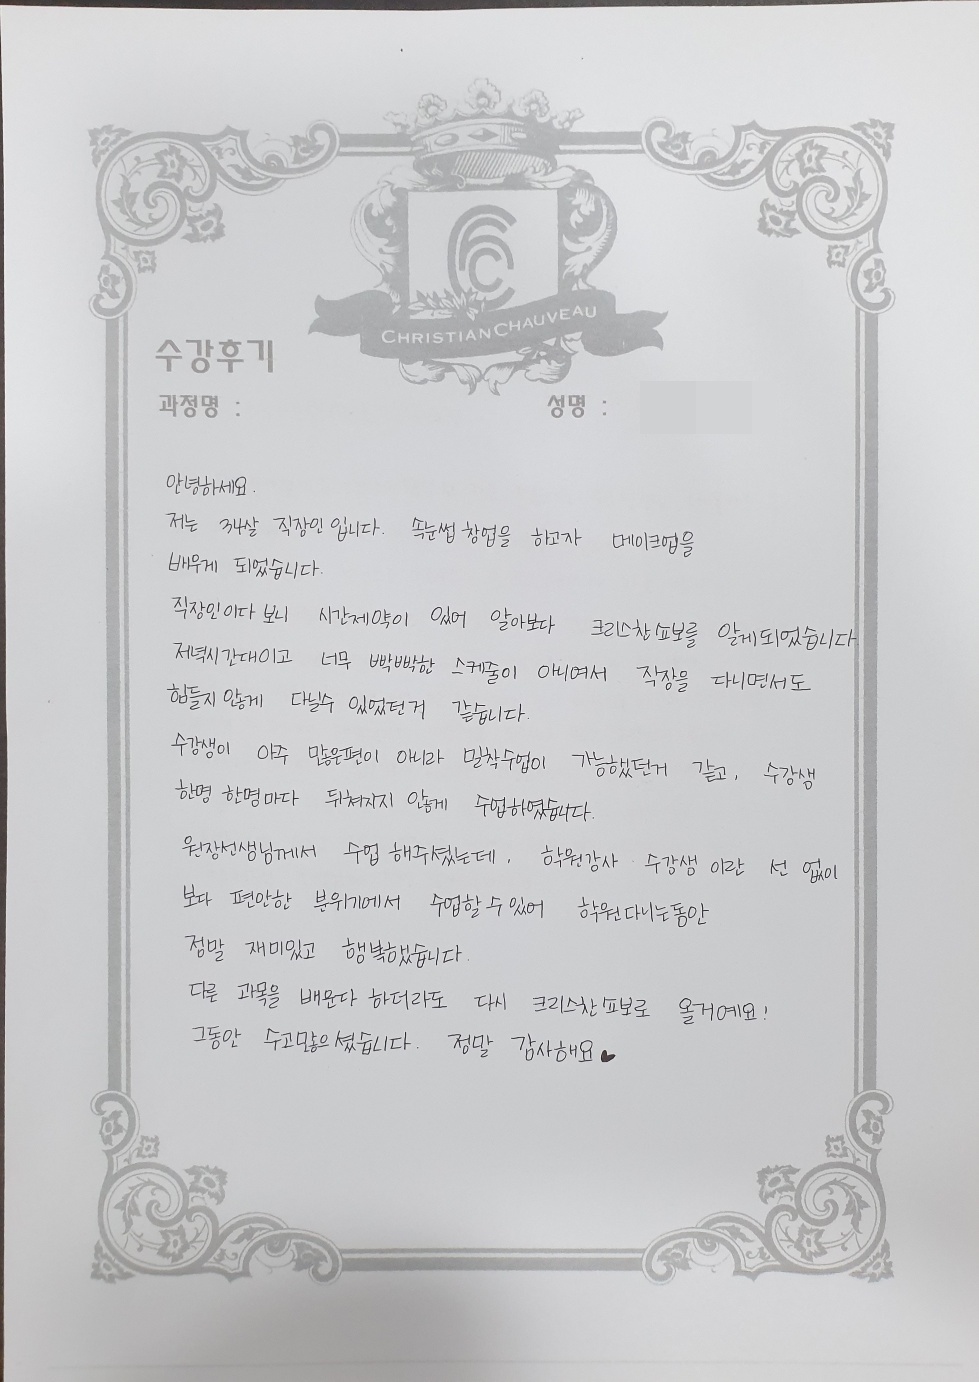 CHRISTIAN CHAUVEAU
수강후기
과정명 : 성명 :
안녕하세요.
저는 34살 직장인 입니다. 속눈썹 창업을 하고자 메이크업을
배우게 되었습니다.
직장인이다 보니 시간제약이 있어 알아보다 크리스찬쇼보를 알게되었습니다
저녁시간대이고 너무 빡빡한 스케줄이 아니여서 직장을 다니면서도
힘들지 않게 다닐수 있었던거 같습니다.
수강생이 아주 많은편이 아니라 밀착수업이 가능했던거 같고, 수강생
한명 한명마다 뒤쳐지지 않게 수업하였습니다.
원장선생님께서 수업 해주셨는데, 학원강사 · 수강생 이란 선 없이
보다 편안한 분위기에서 수업할 수 있어 학원다니는동안
정말 재미있고 행복했습니다.
다른 과목을 배운다 하더라도 다시 크리스찬쇼보로 올거예요!
그동안 수고많으셨습니다. 정말 감사해요♥